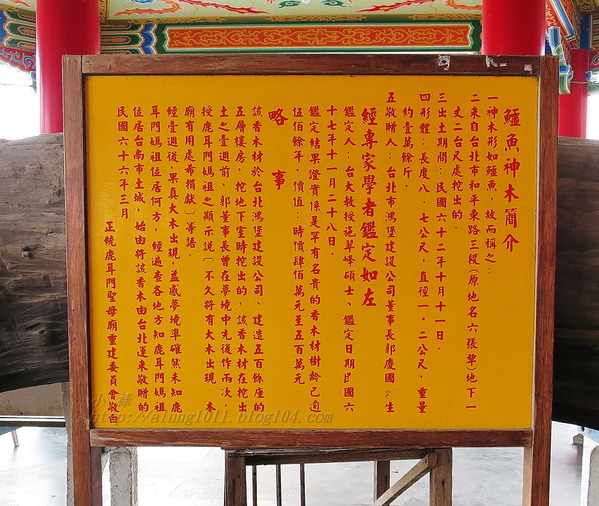 鱷魚神木簡介
一神木形如鱷魚，故而稱之：
二來自台北市和平東路三段（原地名六張犂）地下一
丈二台尺處挖出的．
三出土期間：民國六十二年十月十一日．
四形體：長度八．七公尺，直徑一．二公尺，重量
約壹萬餘斤．
五敬贈人：台北市鴻堡建設公司董事長郭慶國先生
經專家學者鑑定如左
鑑定人：台大教授施翠峰碩士、鑑定日期民國六
十七年十一月二十八日．
鑑定結果證實係是罕有名貴的香木材樹齡已逾
伍佰餘年，價值：時價肆佰萬元至五百萬元
略事
該香木材於台北鴻堡建設公司，建造五百餘座的
五層樓房，挖地下室時挖出的，該香木材在挖出
土之壹週前，郭董事長曾在夢境中先後作兩次
授鹿耳門媽祖之顯示說〔不久將有大木出現，本
廟有用處希捐獻〕等語．
經壹週後，果真大木出現，益感夢境準確然未知鹿
耳門媽祖位居何方，經遍查各地方知鹿耳門媽祖
位居台南市土城，始由將該香木由台北運來敬贈的
民國六十六年三月
正統鹿耳門聖母廟重建委員會敬白
小緣
http://alung1011.blog104.com/